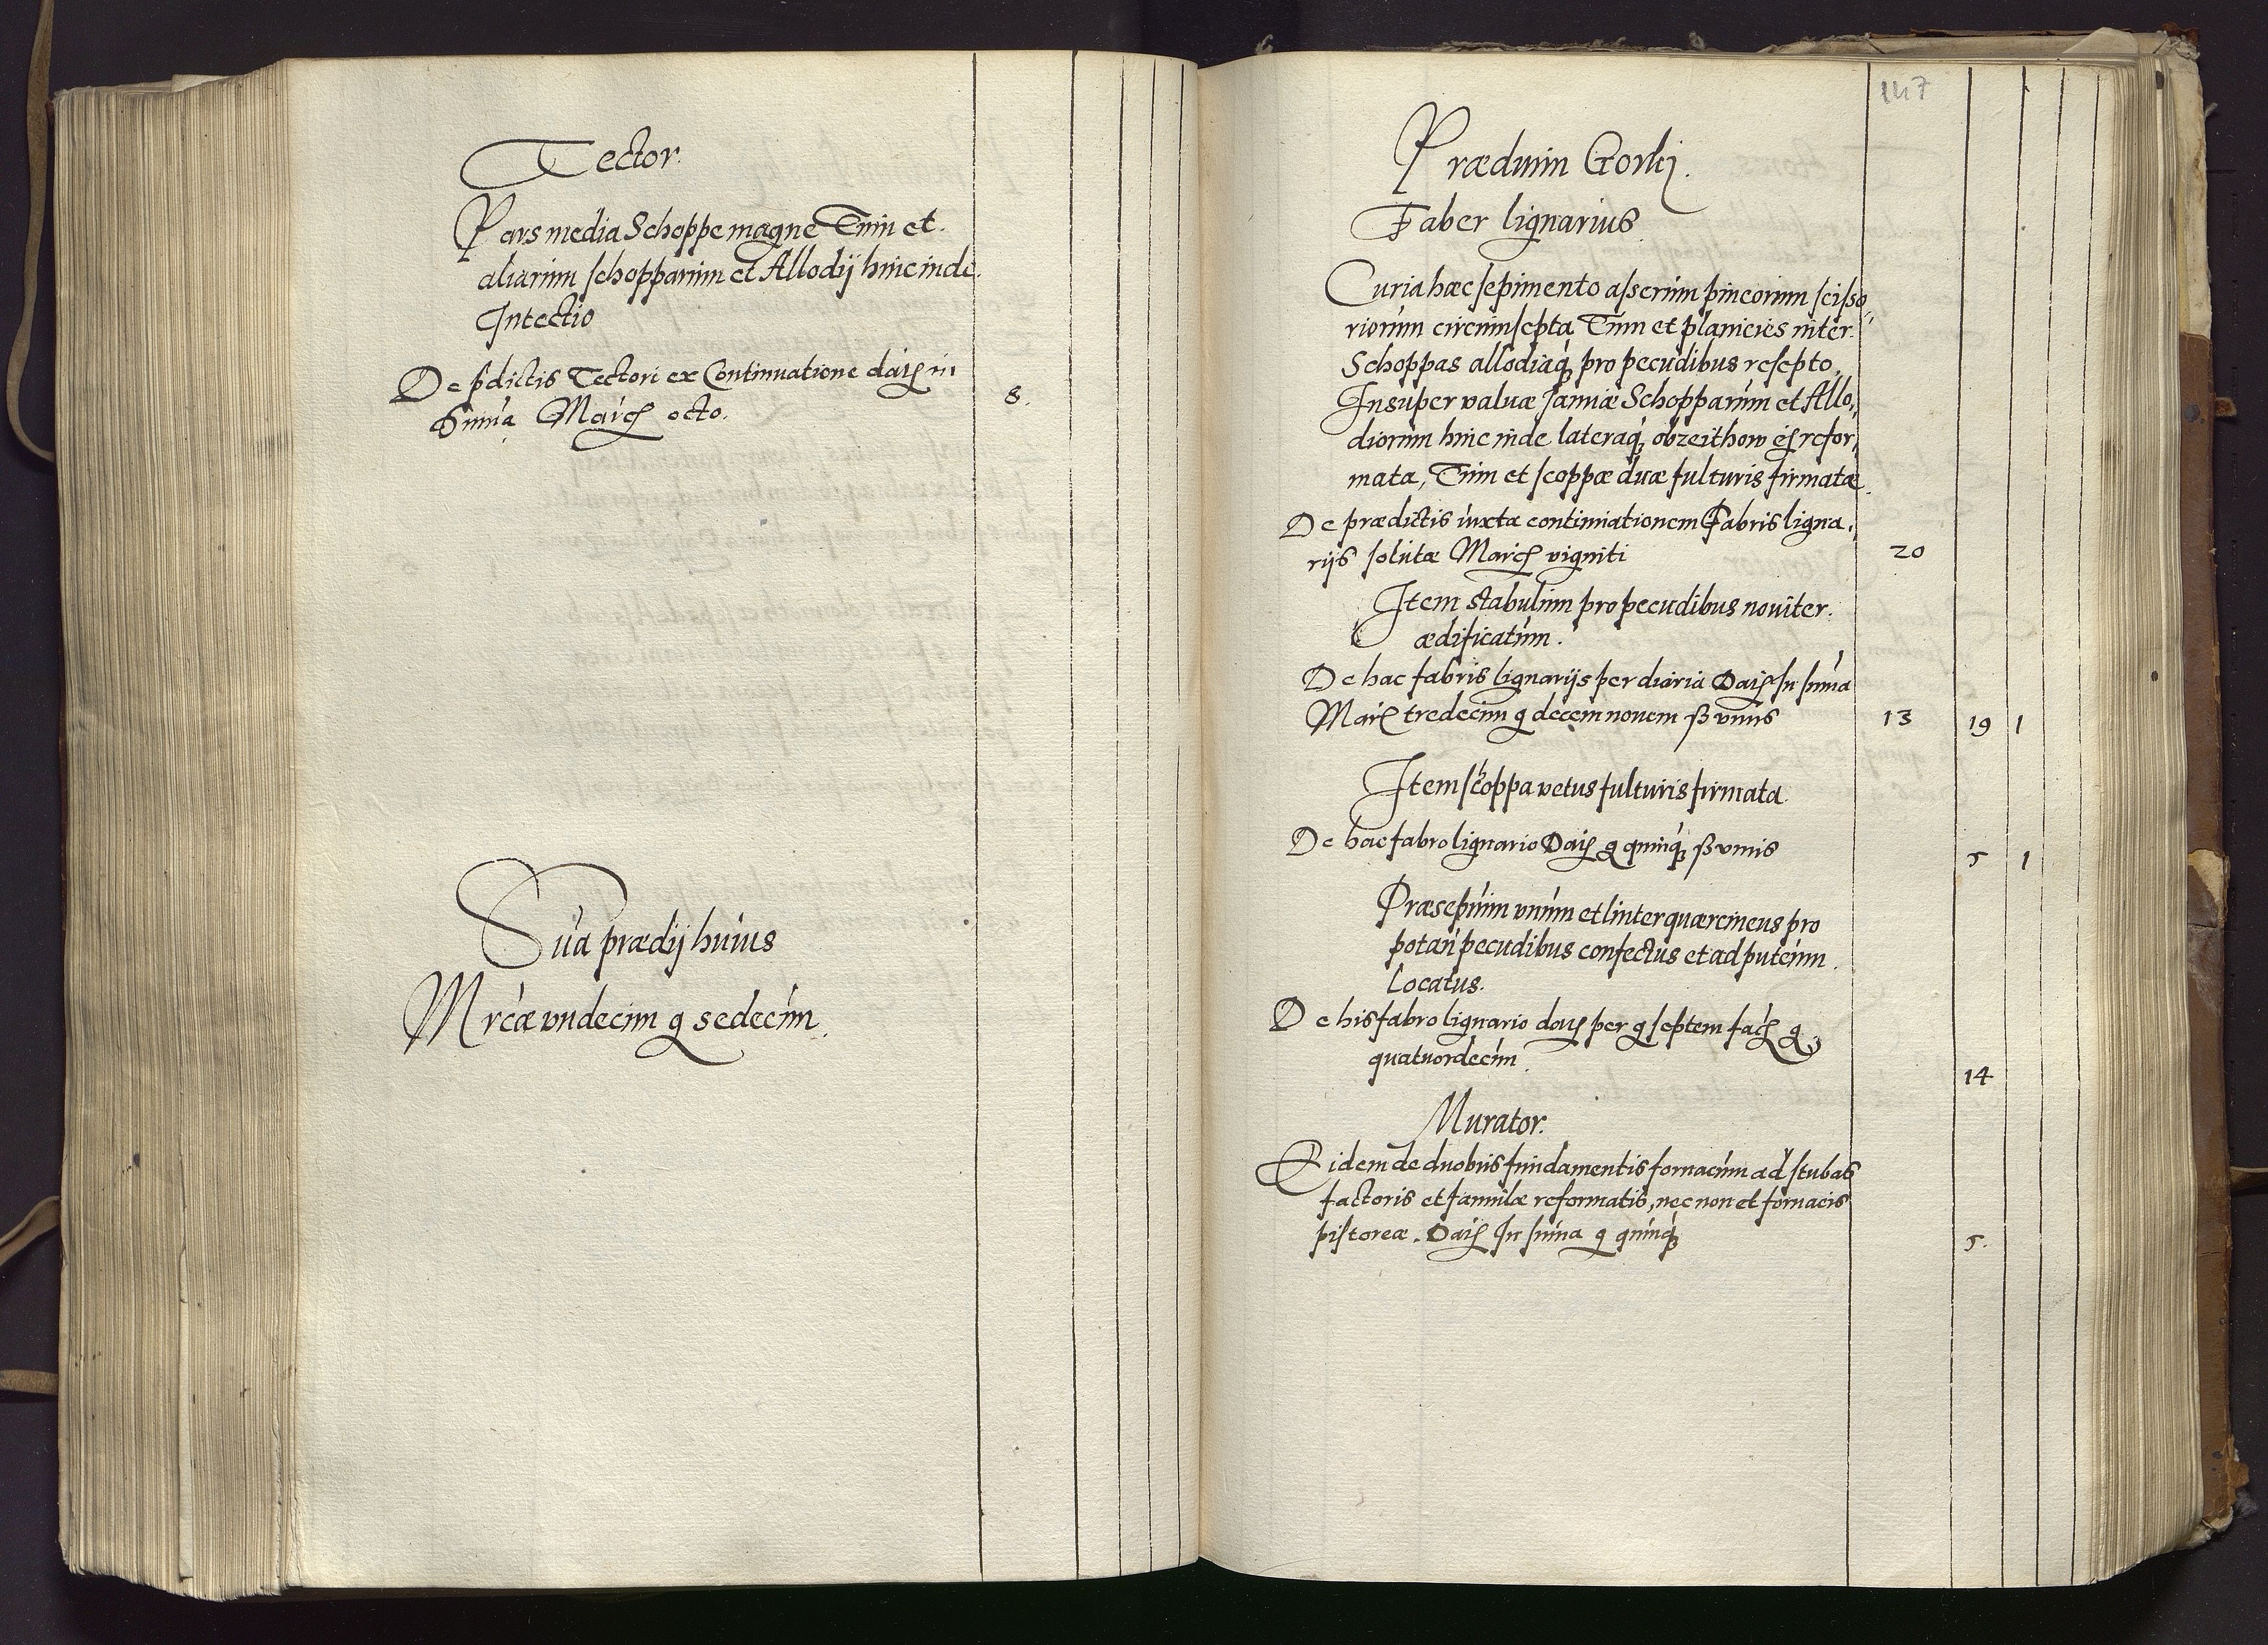 Tector.
Pars media Schoppe magne Tum et
aliarum schopparum et Allodij hincinde
Intectio
De pdictis Tectori ex Continuatione datis in
Suma Marcis octo. 8.
Sua prædij huius
Mrcæ vndecim g sedecim.
147
Prædium Gorki.
Faber lignarius
Curia hæc sepimento asserum pineorum scisso
riorum circumsepta Tum et planicies inter
Schoppas allodiaq₃ pro pecudibus resepto.
Insuper valuæ Januæ Schopparum et Allo,
diorum hinc inde lateraq₃ obzeithow refor,
mata, Tum et scoppæ duæ fulturis firmatæ.
De prædictis iuxta continuationem Fabris ligna,
rijs solutæ Marcis viginti 20
Item stabulum pro pecudibus nouiter
ædificatum.
De hac fabris lignarijs per diaria Datis In suma
Marc tredecim g decem nouem ß vnus 13 19 1
Item schoppa vetus fulturis firmata
De hac fabro lignario Datis g quinq₃ ß vnus 5 1
Præsepium vnum et linter quærcineus pro
potan pecudibus confectus et ad puteum
Locatus.
De his fabro lignario datis per g septem facis g
quatuordecim 14
Murator.
Eidem de duobus fundamentis fornacum ad stubas
factoris et familæ reformatis, nec non et fornacis
pistoreæ. Datis In suma g quinq₃ 5.